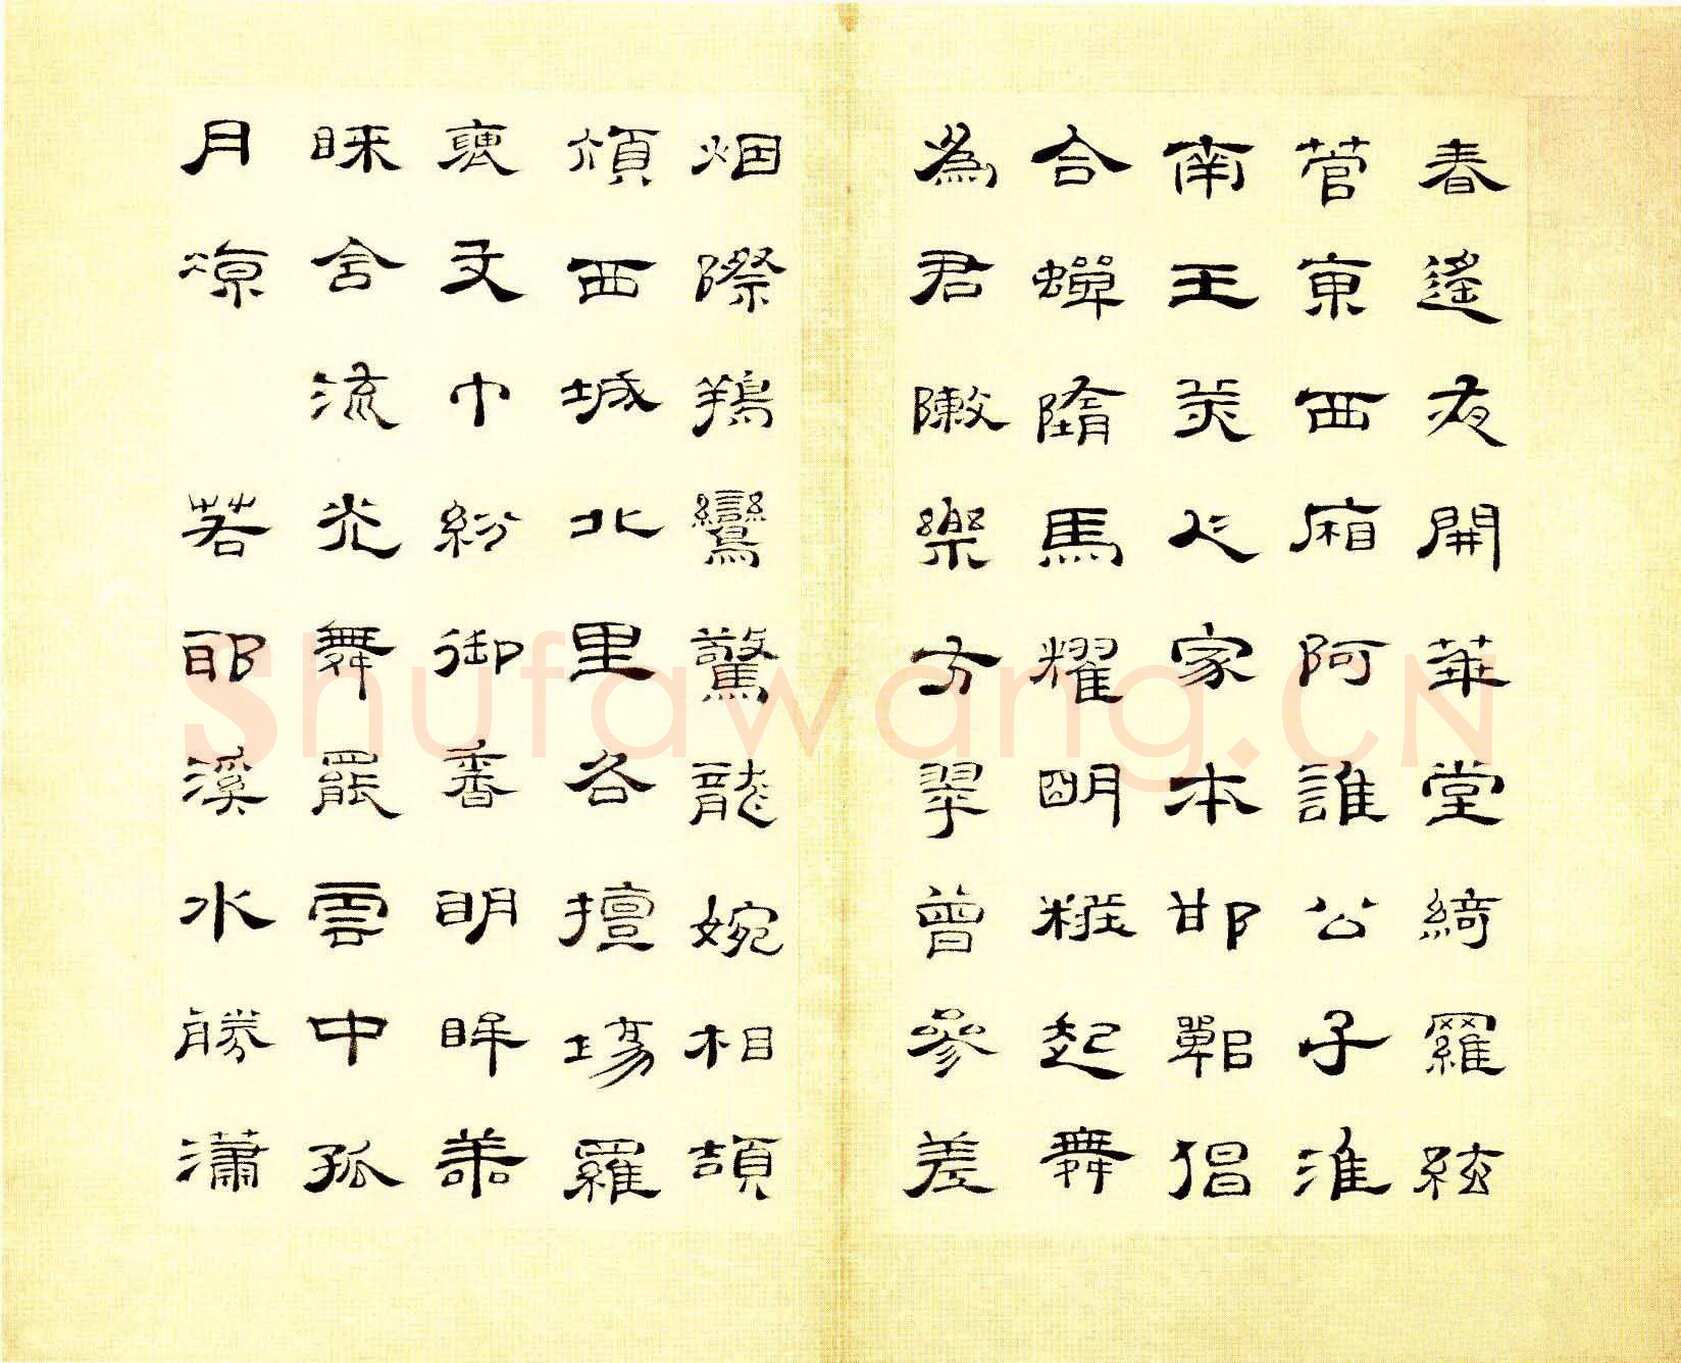 春遙夜開華堂綺羅絃
管東西廂阿誰公子淮
南王美人家本邯鄲倡
合蟬墮馬耀明糚起舞
為君敶樂方翠曾參差
烟際鸞驚龍婉相頡
頏西城北里各擅場羅
裛文巾紛御香明眸善
睞含流光舞罷雲中孤
月涼 若耶溪水勝瀟
Shufawang.CN